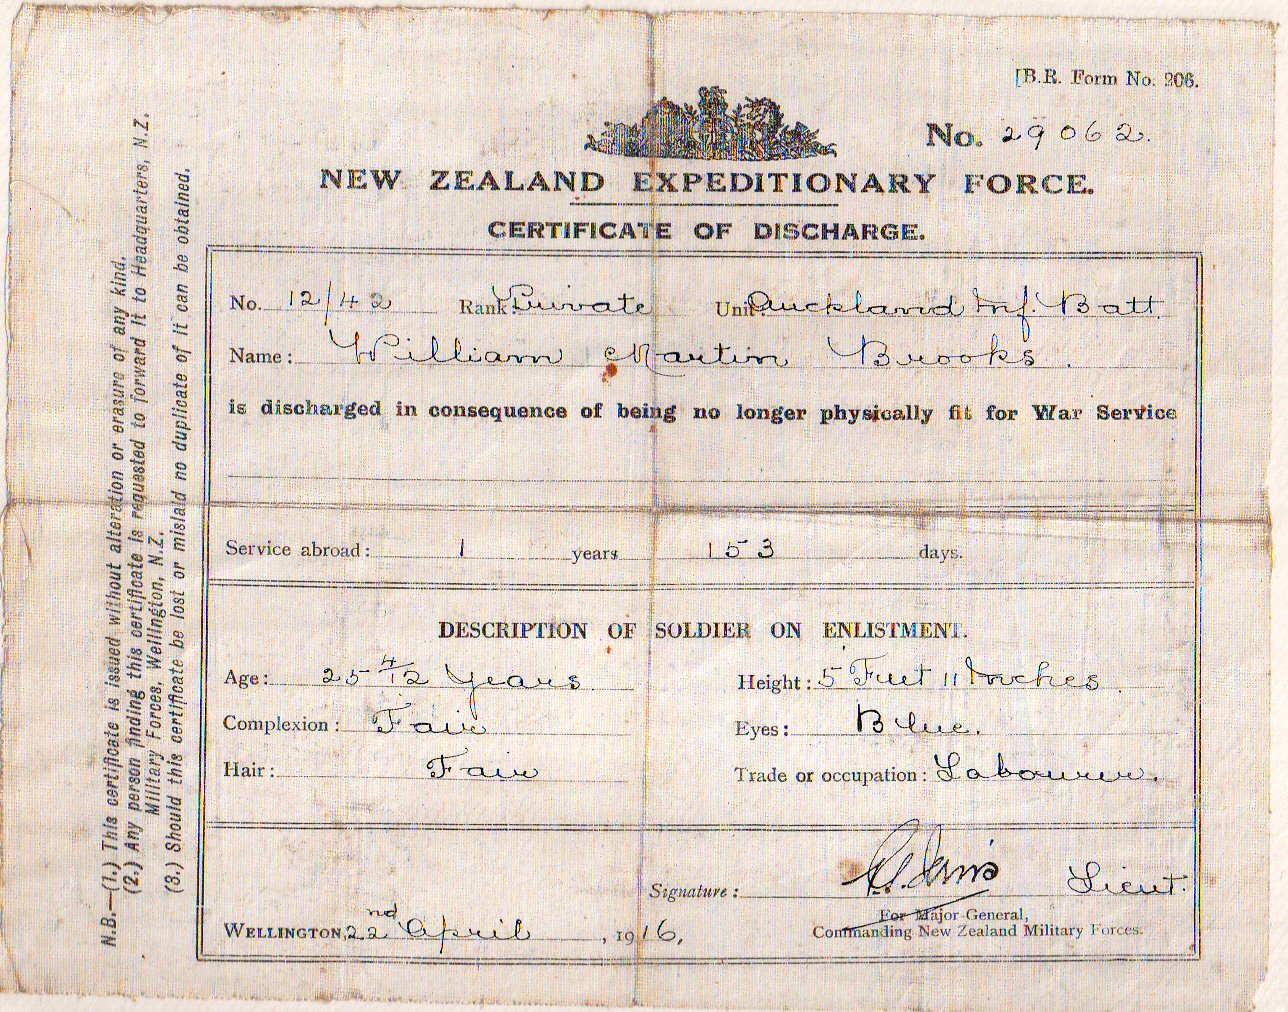 [B.R. Form No. 206.
No. 29062.
NEW ZEALAND EXPEDITIONARY FORCE.
CERTIFICATE OF DISCHARGE.
No. 12/42 Rank: Private Unit: Auckland Inf. Batt.
Name: William Martin Brooks.
is discharged in consequence of being no longer physically fit for War Service
Service abroad: 1 years 153 days.
DESCRIPTION OF SOLDIER ON ENLISTMENT.
Age: 25 4/12 Years Height: 5 Feet 11 Inches
Complexion: Fair Eyes: Blue.
Hair: Fair Trade or occupation: Labourer.
Signature: Lieut.
For Major-General,
WELLINGTON, 22nd April, 1916, Commanding New Zealand Military Forces.
N.B.—(1.) This certificate is issued without alteration or erasure of any kind.
(2.) Any person finding this certificate is requested to forward it to Headquarters, N.Z.
Military Forces, Wellington, N.Z.
(3.) Should this certificate be lost or mislaid no duplicate of it can be obtained.